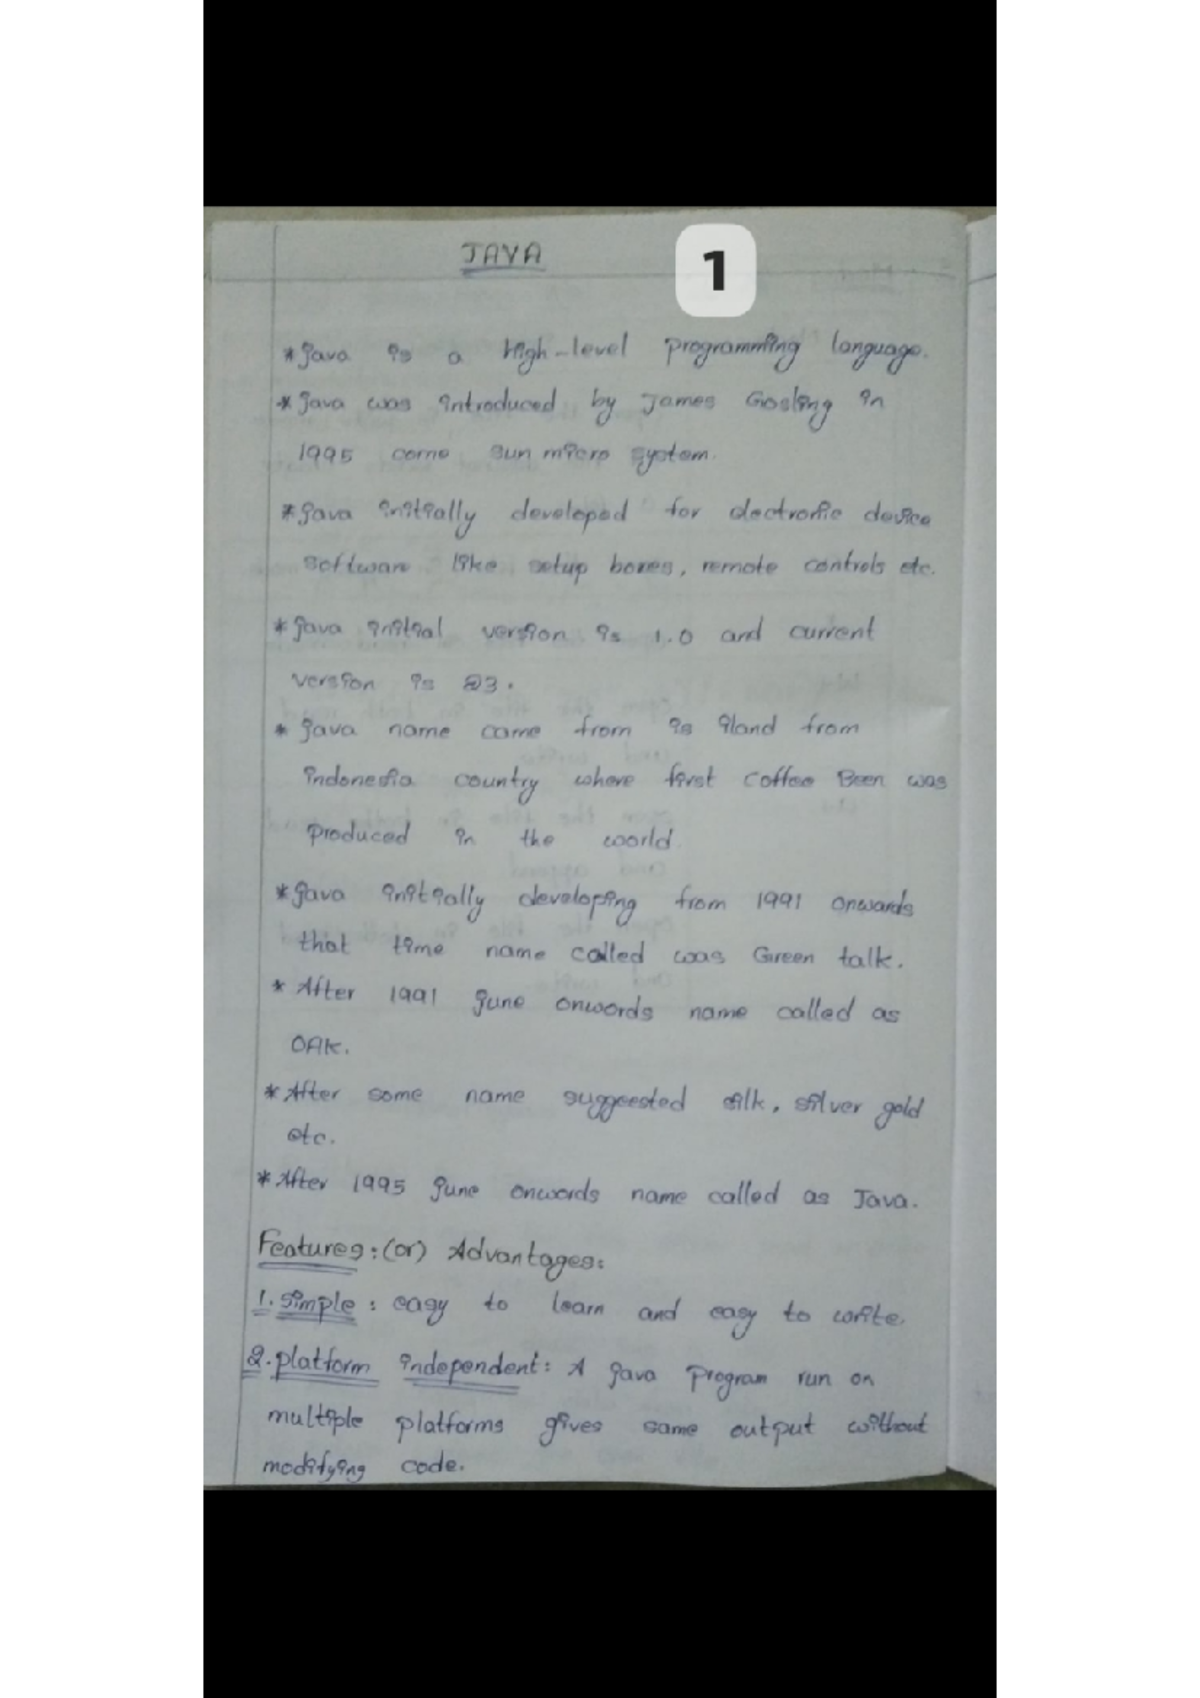 JAVA
1
* Java is a High-level programming language.
* Java was introduced by James Gosling in
1995 come sun micro system.
* Java initially developed for electronic device
software like setup boxes, remote controls etc.
* Java initial version is 1.0 and current
version is 23.
* Java name came from is iland from
indonesia country where first coffee Been was
produced in the world.
* Java initially developing from 1991 onwards
that time name called was Green talk.
* After 1991 June onwords name called as
OAK.
* After some name suggeested silk, silver gold
etc.
* After 1995 June onwords name called as Java.
Features: (or) Advantages:
1. Simple : easy to learn and easy to write.
2. platform independent: A Java program run on
multiple platforms gives same output without
modifying code.